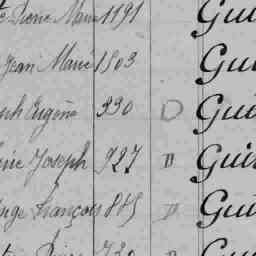 Pierre Marie 1191 Gui
Jean Marie 1503 Gui
Eugène 330 D Gui
Joseph 927 D Gui
François 845 D Gui
730 D Gui